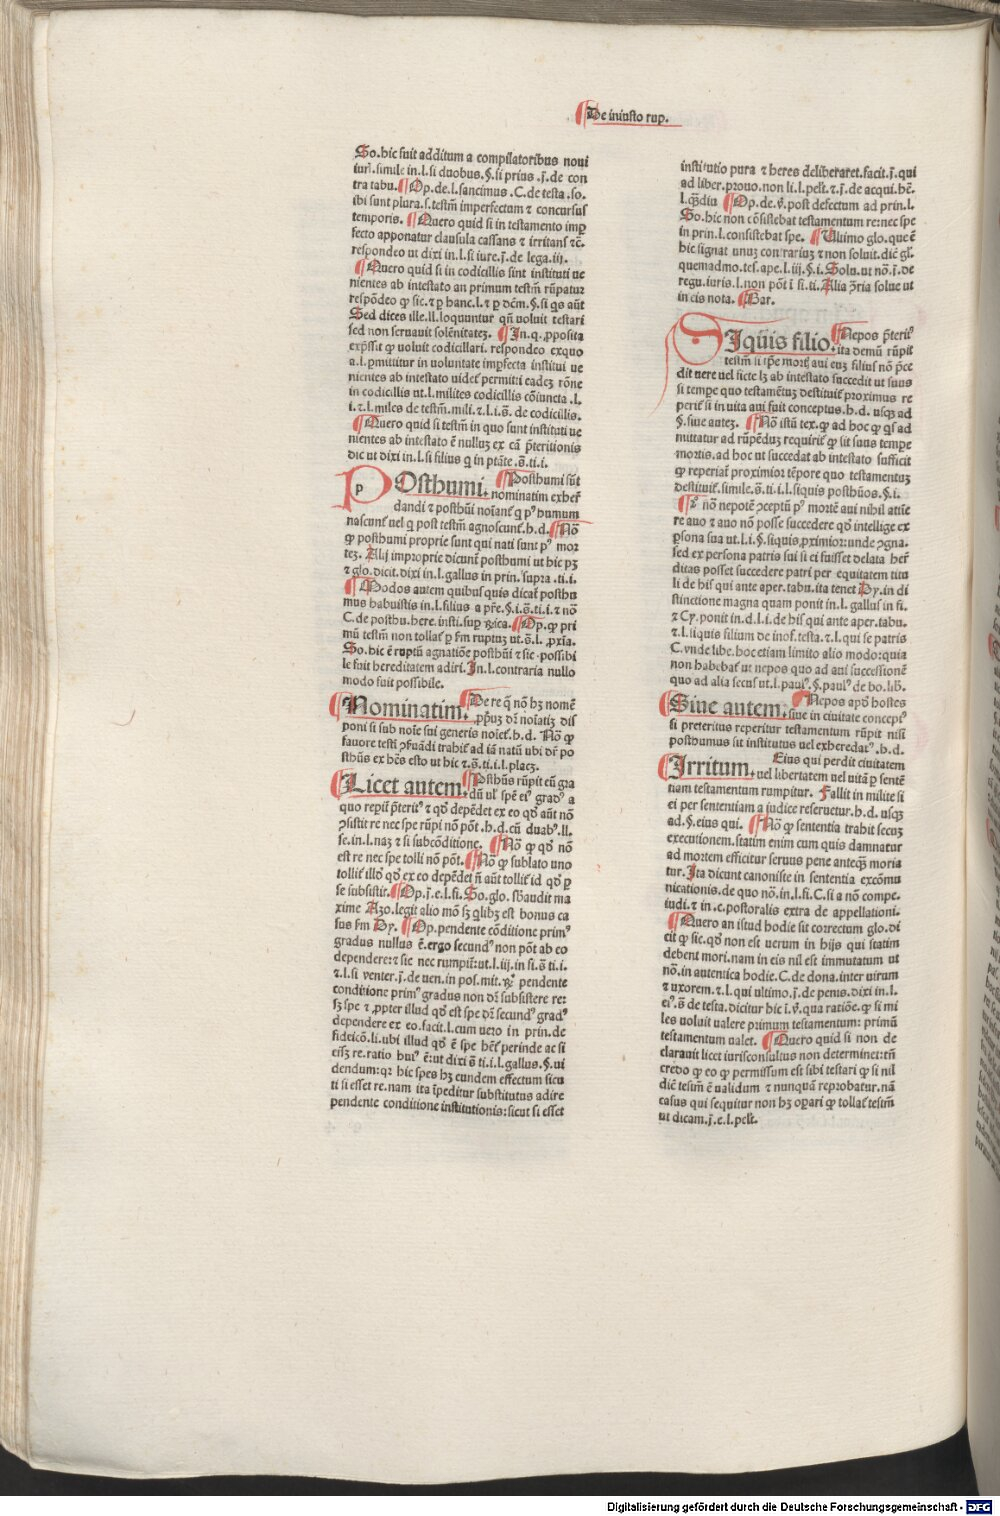 De iniusto rup.
So.hic fuit additum a compilatoribus noui
iurꝭ.simile in.l.si duobus.§.si prius.j̄.de con
tra tabu. Op.de.l.sancimus.C.de testa.so.
ibi sunt plura.s.testm̄ imperfectum ⁊ concursus
temporis. Quero quid si in testamento imꝑ
fecto apponatur clausula cassans ⁊ irritans ⁊c̄.
respondeo ut dixi in.l.si iure.j̄.de lega.iij.
Quero quid si in codicillis sint instituti ue
nientes ab intestato an primum testm̄ rūpatur
respōdeo ꝙ sic.⁊ ꝑ hanc.l.⁊ ꝑ dc̄m.§.si qs aūt
Sed dices ille.ll.loquuntur qn̄ uoluit testari
sed non seruauit solēnitateꝫ. In.q.ꝓposita
exp̄ssit ꝙ uoluit codicillari. respondeo exquo
a.l.ꝑmittitur in uoluntate imꝑfecta institui ue
nientes ab intestato uidet᷑ permitti eadeꝫ rōne
in codicillis ut.l.milites codicillis cōiuncta.l.
i.⁊.l.miles de testm̄.mili.⁊.l.i.s̄.de codicillis.
Quero quid si testm̄ in quo sunt instituti ue
nientes ab intestato ē nulluꝫ ex cā p̄teritionis
dic ut dixi in.l.si filius q̄ in ptāte.s̄.ti.i.
POsthumi. Posthumi sūt
nominatim exher᷑
dandi ⁊ posthūi noīant᷑ q̄ pꝰ humum
nascunt᷑ uel q̄ post testm̄ agnoscunt᷑.h.d. Nō
ꝙ posthumi proprie sunt qui nati sunt pꝰ mor
teꝫ. Alij improprie dicunt᷑ posthumi ut hic pꝫ
⁊ glo.dicit.dixi in.l.gallus in prin.supra.ti.i.
Modos autem quibus quis dicat᷑ posthu
mus habuistis in.l.filius a pr̄e.§.i.s̄.ti.i.⁊ nō
C.de posthu.here.insti.suꝑ rubrica. Op.ꝙ pri
mū testm̄ non tollat᷑ ꝑ sm̄ ruptuꝫ ut.s̄.l.ꝓxīa.
So.hic ē ruptū agnatiōe posthūi ⁊ sic.possibi
le fuit hereditatem adiri. In.l.contraria nullo
modo fuit possibile.
Nominatim. De re q̄ nō hꝫ nomē
ꝓp̄uꝫ dn̄ noīatiꝫ dis
poni si sub noīe sui generis noīet᷑.h.d. Nō ꝙ
fauore testi ꝯfuādi trahit᷑ ad iā natū ubi dr̄ po
sthūs ex hēs esto ut hic ⁊.s̄.ti.i.l.placꝫ.
Licet autem. Posthūs rūpit eū gra
dū ul̓ spē eiꝰ gradꝰ a
quo reꝑit᷑ p̄teritꝰ ⁊ qd̓ depēdet ex eo qd̓ aūt nō
ꝯsistit re nec spe rūpi nō pōt.h.d.cū duabꝰ.ll.
se.in.l.naꝫ ⁊ si subcōditione. Nō ꝙ qd̓ nō
est re nec spe tolli nō pōt. Nō ꝙ sublato uno
tollit᷑ illd̓ qd̓ ex eo depēdet n̄ aūt tollit᷑ id qd̓ ꝑ
se subsistit. Op.j̄.e.l.si. So.glo.sbaudit ma
xime Azo.legit alio mō sꝫ qlibꝫ est bonus ca
sus sm̄ Dy. Op.pendente cōditione primꝰ
gradus nullus ē.ergo secundꝰ non pōt ab eo
dependere:⁊ sic nec rumpit᷑:ut.l.iij.in fi.s̄ ti.i.
⁊.l.si venter.j̄.de uen.in pos.mit. pendente
conditione primꝰ gradus non dꝫ subsistere re:
sꝫ spe ⁊ ꝓpter illud qd̓ est spe dꝫ secundꝰ gradꝰ
dependere ex eo.facit.l.cum uero in prin.de
fideicō.li.ubi illud qd̓ ē spe hēt᷑ perinde ac si
eſſꝫ re.ratio huiꝰ ē:ut dixi s̄ ti.i.l.gallus.§.ui
dendum:qꝛ hic spes hꝫ eundem effectum sicu
ti si esset re.nam ita īpeditur substitutus adire
pendente conditione institutionis:sicut si esset
institutio pura ⁊ heres deliberaret.facit.j̄.qui
ad liber.prouo.non li.l.pel̓t.⁊ j̄.de acqui.hē.
l.qdiu Op.de.v̄.post defectum ad prin.l.
So.hic non cōsistebat testamentum re:nec spe
in prin.l.consistebat spe. Ultimo glo.que ē
hic signat unuꝫ contrariuꝫ ⁊ non soluit.dic gl̓.
quemadmo.tes.ape.l.iij.§.i. Solu.ut nō.j̄.de
regu.iuris.l.non pōt ī fi.ti. Alia p̄ria solue ut
in eis nota. Bar.
SIquis filio. Nepos p̄teritꝰ
ita demū rūpit
testm̄ si tꝑe mortꝭ aui euꝫ filius nō p̄ce
dit uere uel ficte lꝫ ab intestato succedit ut suus
si tempe quo testamētuꝫ destituit᷑ proximus re
perit᷑ si in uita aui fuit conceptus.h.d. usqꝫ ad
§.siue auteꝫ. Nō istū tex.ꝙ ad hoc ꝙ qs ad
mittatur ad rūpēduꝫ requirit᷑ ꝙ sit suus tempe
mortis.ad hoc ut succedat ab intestato sufficit
ꝙ reperiat᷑ proximior tēpore quo testamentuꝫ
destituit᷑.simile.s̄.ti.i.l.siquis posthūos.§.i.
nō nepotē ꝯceptū pꝰ mortē aui nihil attine
re auo ⁊ auo nō posse succedere qd̓ intellige ex
ꝑsona sua ut.l.i.§.siquis.ꝓximior:unde ꝯgna.
sed ex persona patris sui si ei fuisset delata her᷑
ditas posset succedere patri per equitatem titu
li de his qui ante aper.tabu.ita tenet Dy.in di
stinctione magna quam ponit in.l.gallus in fi.
⁊ Cy.ponit in.d.l.i.de his qui ante aper.tabu.
⁊.l.siquis filium de inof.testa.⁊.l.qui se patris
C.vnde libe.hoc etiam limito alio modo:quia
non habebat᷑ ut nepos quo ad aui successionē
quo ad alia secus ut.l.paulꝰ.§.paulꝰ de bo.lib̄.
Siue autem. Nepos apd̓ hostes
siue in ciuitate concepꝰ
si preteritus reperitur testamentum rūpit nisi
posthumus sit institutus uel exheredatꝰ.h.d.
Irritum. Eius qui perdit ciuitatem
uel libertatem uel uitā ꝑ sentē
tiam testamentum rumpitur. Fallit in milite si
ei per sententiam a iudice reseruetur.h.d. usqꝫ
ad.§.eius qui. Nō ꝙ sententia trahit secuꝫ
executionem.statim enim cum quis damnatur
ad mortem efficitur seruus pene anteqꝫ moria
tur. Ita dicunt canoniste in sententia excōmu
nicationis.de quo nō.in.l.fi.C.si a nō compe.
iudi.⁊ in.c.pastoralis extra de appellationi.
Quero an istud hodie sit correctum glo.di
cit ꝙ sic.qd̓ non est uerum in hijs qui statim
debent mori.nam in eis nil est immutatum ut
nō.in autentica hodie.C.de dona.inter uirum
⁊ uxorem.⁊.l.qui ultimo.j̄.de penis.dixi in.l.
eiꝰ.s̄ de testa.dicitur hic ī.v̄.qua ratiōe.ꝙ si mi
les uoluit ualere primum testamentum: primū
testamentum ualet. Quero quid si non de
clarauit licet iurisconsultus non determinet:tn̄
credo ꝙ eo ꝙ permissum est sibi testari ꝙ si nil
dic̄ testm̄ ē ualidum ⁊ nunquā reprobatur.nā
casus qui sequitur non hꝫ oꝑari ꝙ tollat᷑ testm̄
ut dicam.j̄.e.l.pel̓t.
Digitalisierung gefördert durch die Deutsche Forschungsgemeinschaft - DFG